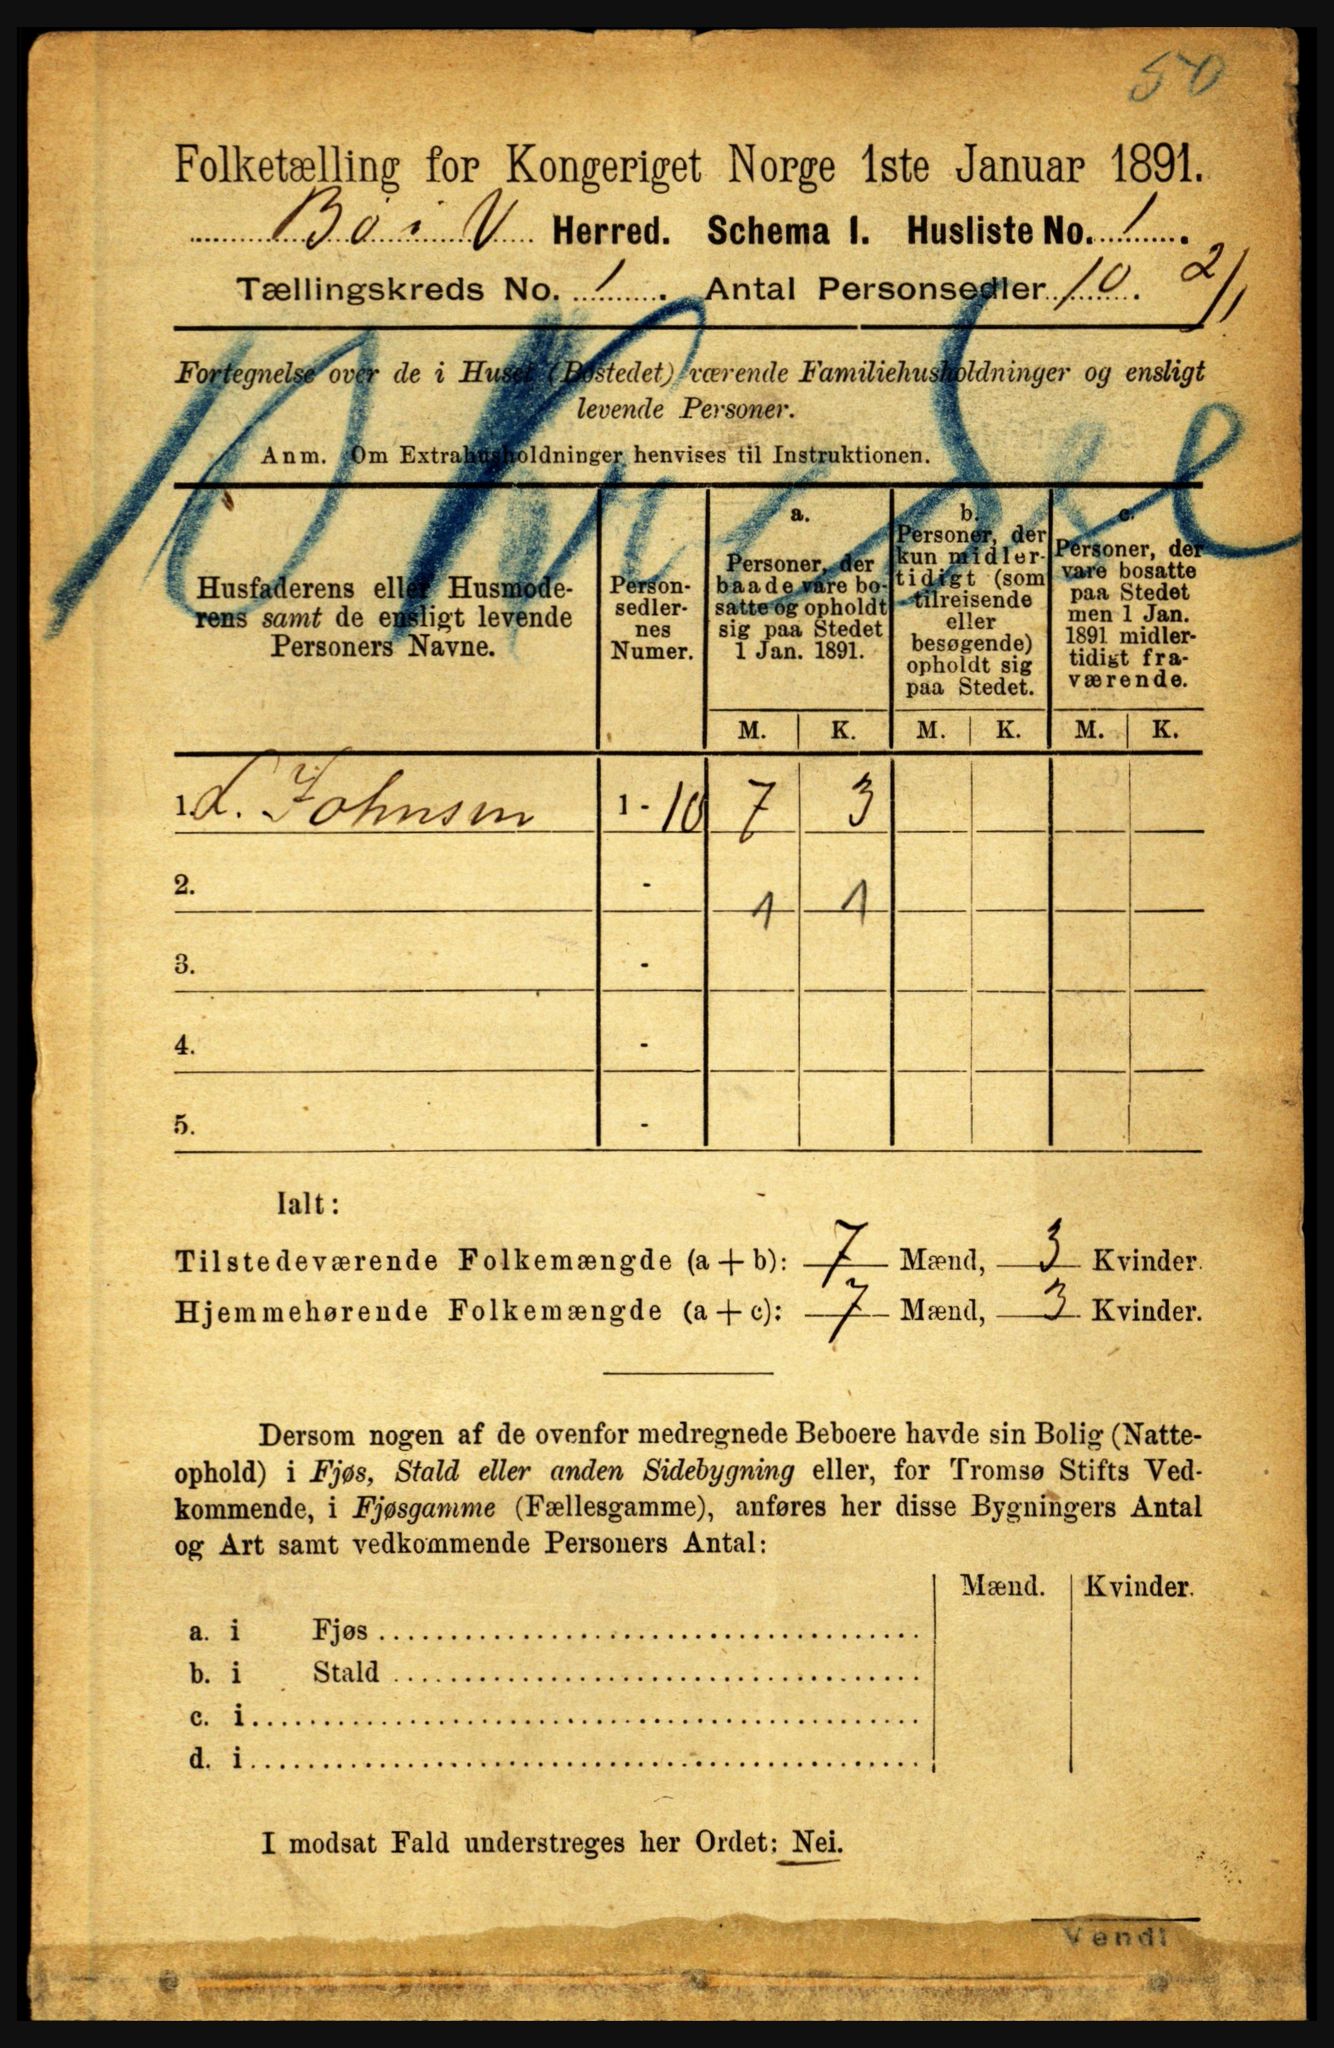 50
Folketælling for Kongeriget Norge 1ste Januar 1891.
Bø i V Herred. Schema I. Husliste No. 1.
Tællingskreds No. 1. Antal Personsedler 10. 2/1
Fortegnelse over de i Huset (Bostedet) værende Familiehusholdninger og ensligt
levende Personer.
Anm. Om Extrahusholdninger henvises til Instruktionen.
Husfaderens eller Husmode-
rens samt de ensligt levende
Personers Navne.
Person-
sedler-
nes
Numer.
a.
Personer, der
baade vare bo-
satte og opholdt
sig paa Stedet
1 Jan. 1891.
b.
Personer, der
kun midler-
tidigt (som
tilreisende
eller
besøgende)
opholdt sig
paa Stedet.
c.
Personer, der
vare bosatte
paa Stedet
men 1 Jan.
1891 midler-
tidigt fra-
værende.
M. K. M. K. M. K.
1. L. Johnsen 1 - 10 7 3
2. - 1 1
3. -
4. -
5. -
Ialt:
Tilstedeværende Folkemængde (a + b): 7 Mænd, 3 Kvinder.
Hjemmehørende Folkemængde (a + c): 7 Mænd, 3 Kvinder.
Dersom nogen af de ovenfor medregnede Beboere havde sin Bolig (Natte-
ophold) i Fjøs, Stald eller anden Sidebygning eller, for Tromsø Stifts Ved-
kommende, i Fjøsgamme (Fællesgamme), anføres her disse Bygningers Antal
og Art samt vedkommende Personers Antal:
Mænd. Kvinder.
a. i Fjøs
b. i Stald
c. i
d. i
I modsat Fald understreges her Ordet: Nei.
Vend!